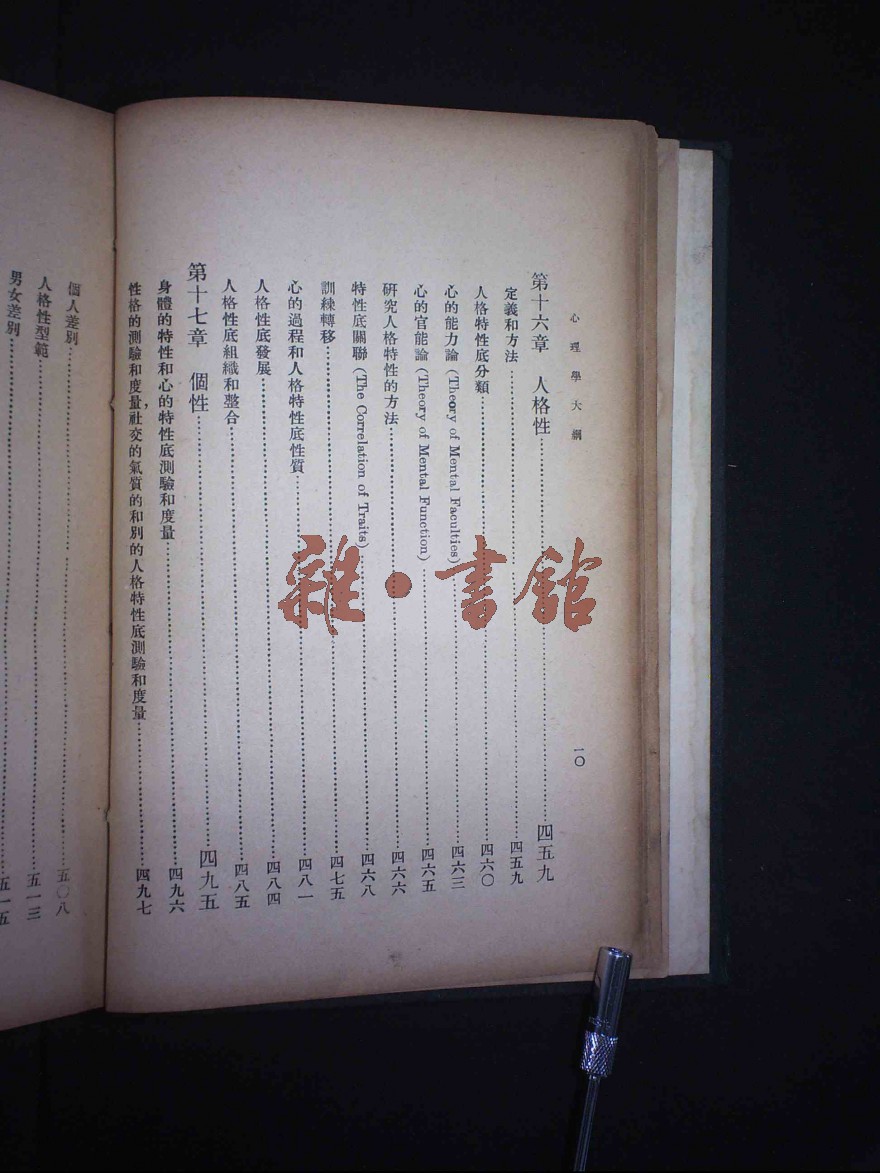 心理學大綱
一〇
第十六章 人格性……四五九
定義和方法……四五九
人格特性底分類……四六〇
心的能力論 (Theory of Mental Faculties)……四六三
心的官能論 (Theory of Mental Function)……四六五
研究人格特性的方法……四六六
特性底關聯 (The Correlation of Traits)……四六八
訓練轉移……四七五
心的過程和人格特性底性質……四八一
人格性底發展……四八四
人格性底組織和整合……四八五
第十七章 個性……四九五
身體的特性和心的特性底測驗和度量……四九六
性格的測驗和度量，社交的氣質的和別的人格特性底測驗和度量……四九七
個人差別……五〇八
人格性型範……五一三
男女差別……五一五
雜·書館